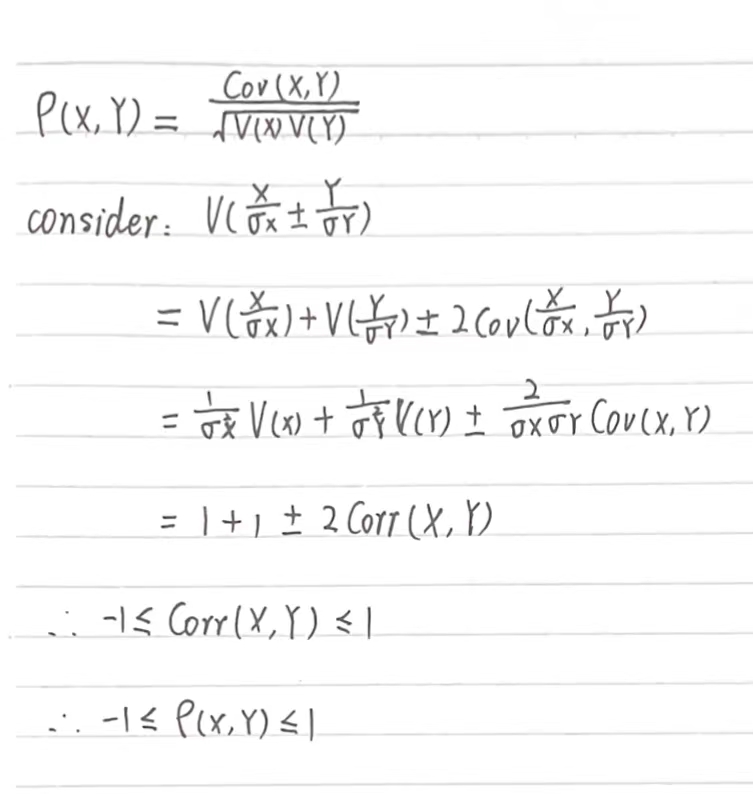 ρ(X,Y) = Cov(X,Y) / √V(X)V(Y)
consider: V(X/σx ± Y/σY)
= V(X/σX) + V(Y/σY) ± 2Cov(X/σx, Y/σY)
= 1/σ²X V(x) + 1/σ²Y V(Y) ± 2/σXσY Cov(X,Y)
= 1 + 1 ± 2Corr(X,Y)
∴ -1 ≤ Corr(X,Y) ≤ 1
∴ -1 ≤ ρ(X,Y) ≤ 1